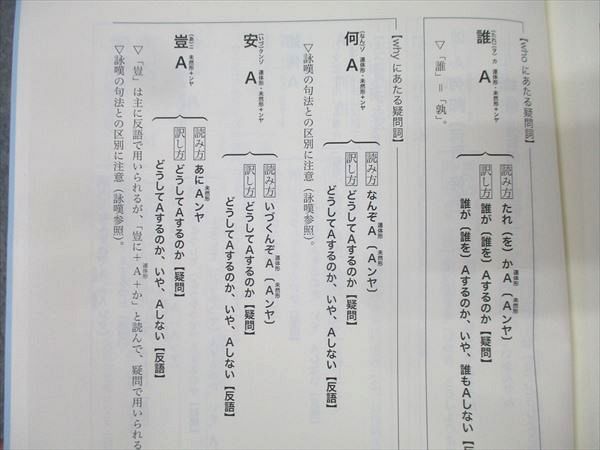 【who にあたる疑問詞】
誰(たれ)(ニヲ)カ A 連体形・未然形+ンヤ
読み方 たれ(を)かA連体形(A未然形ンヤ)
訳し方 誰が(誰を)Aするのか【疑問】
誰が(誰を)Aするのか、いや、誰もAしない【反語】
▽「誰」=「孰」。
【why にあたる疑問詞】
何(なん)ゾ A 連体形・未然形+ンヤ
読み方 なんぞA連体形(A未然形ンヤ)
訳し方 どうしてAするのか【疑問】
どうしてAするのか、いや、Aしない【反語】
▽詠嘆の句法との区別に注意(詠嘆参照)。
安(いづ)クンゾ A 連体形・未然形+ンヤ
読み方 いづくんぞA連体形(A未然形ンヤ)
訳し方 どうしてAするのか【疑問】
どうしてAするのか、いや、Aしない【反語】
豈(あ)ニ A 未然形+ンヤ
読み方 あにA未然形ンヤ
訳し方 どうしてAするのか【疑問】
どうしてAするのか、いや、Aしない【反語】
▽「豈」は主に反語で用いられるが、「豈に+A連体形+か」と読んで、疑問で用いられる
▽詠嘆の句法との区別に注意(詠嘆参照)。